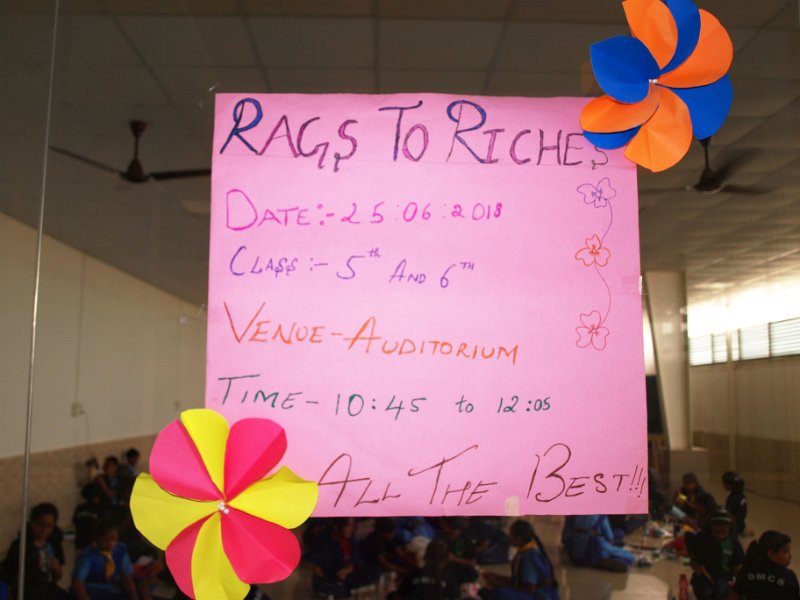 RAGS TO RICHES
DATE:- 25:06:2018
CLASS:- 5th AND 6TH
VENUE-AUDITORIUM
TIME-10:45 to 12:05
ALL THE BEST!!!
DMCS